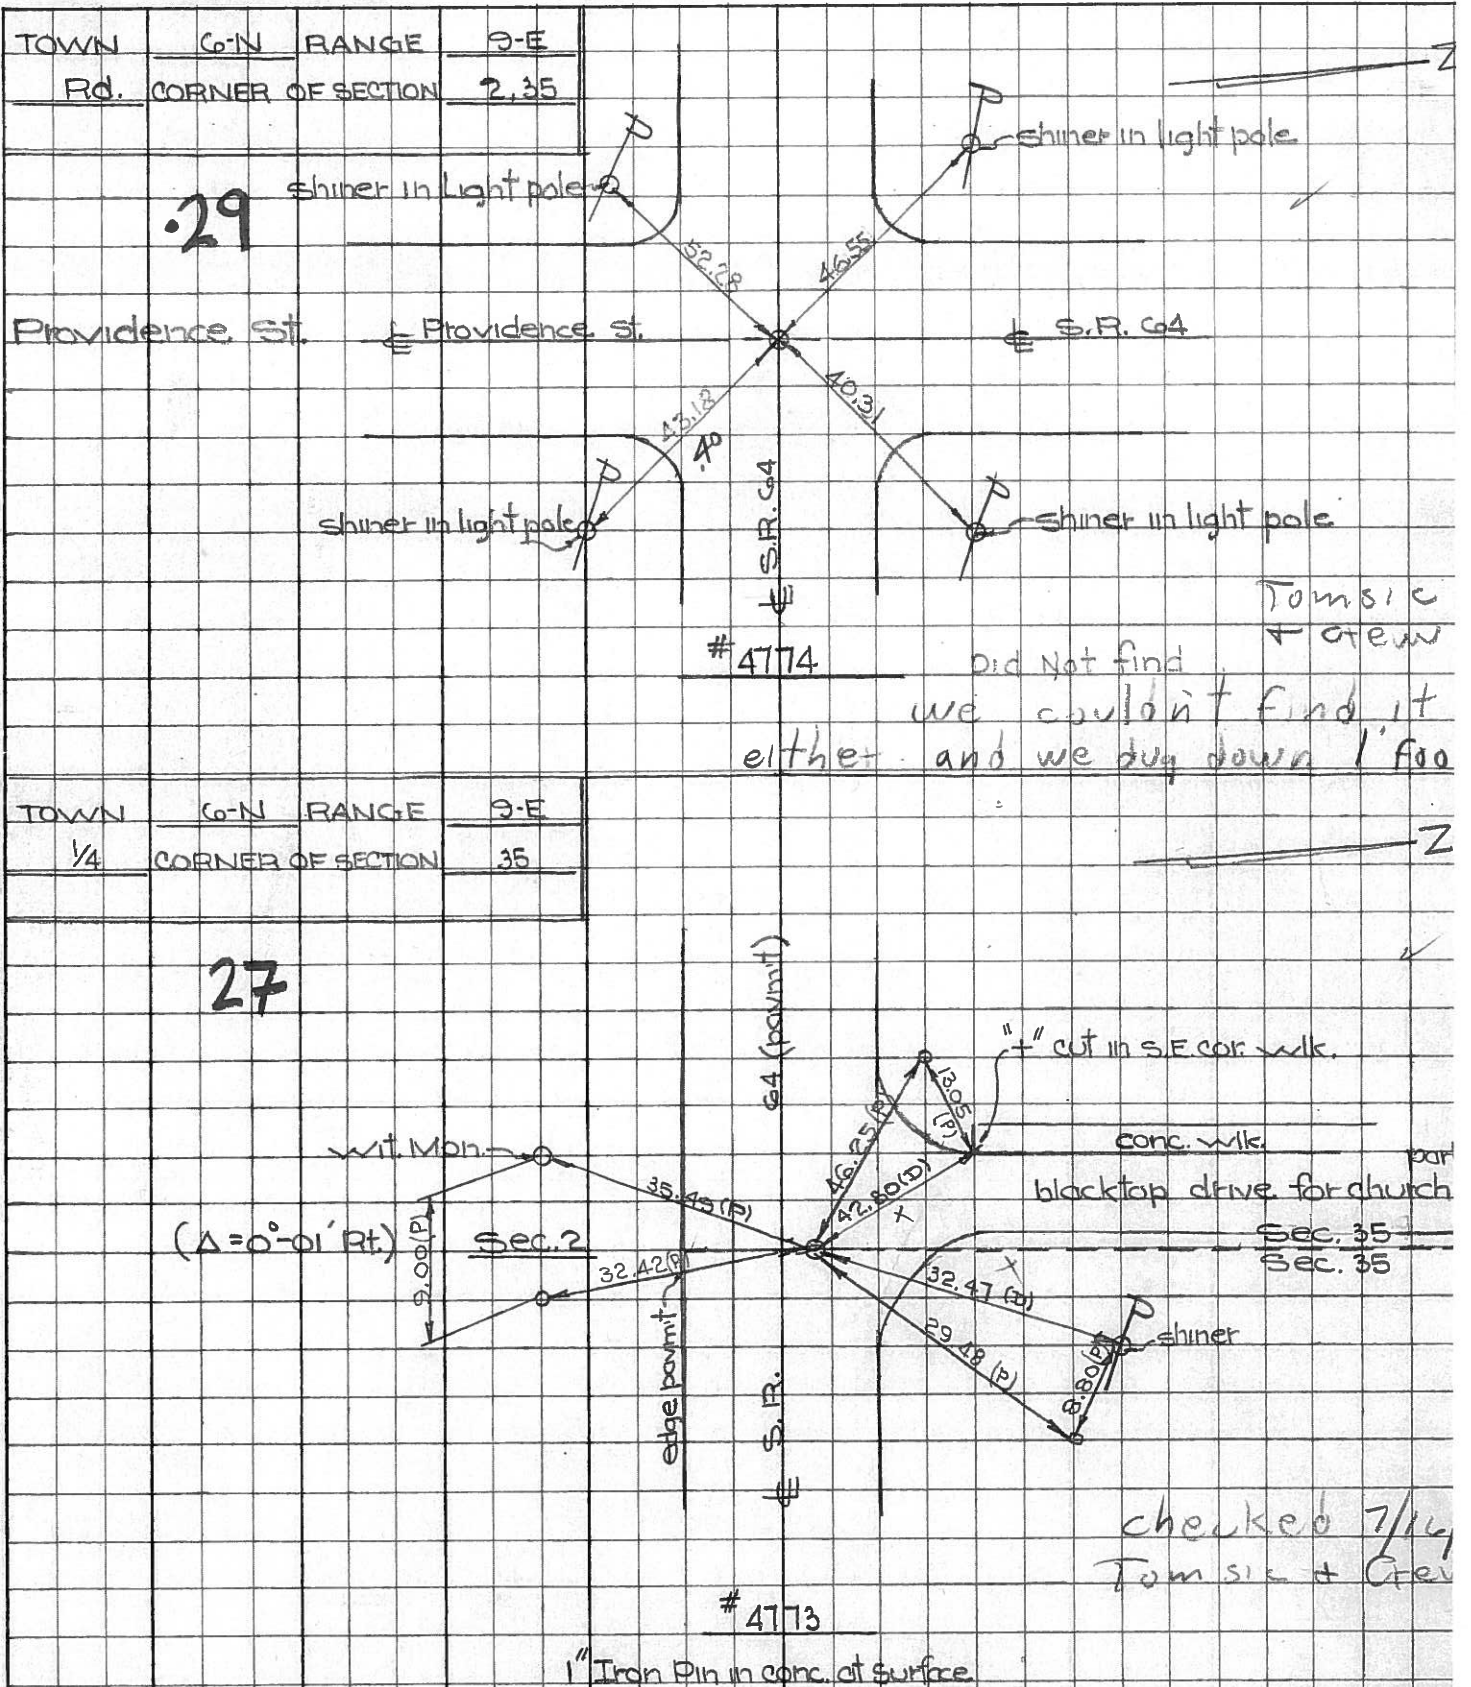 TOWN 6-N RANGE 9-E
Rd. CORNER OF SECTION 2,35
Z
P
P
shiner in light pole
shiner in Light pole
.29
52.28
46.55
Providence St.
℄ Providence St.
℄ S.R. 64
43.18
.40
40.31
P
P
shiner in light pole
shiner in light pole
℄ S.R. 64
Tomsic
+ crew
#4774
Did Not find
we couldn't find it
either and we dug down 1' foo
TOWN 6-N RANGE 9-E
1/4 CORNER OF SECTION 35
Z
27
64 (pavmit)
"+" cut in S.E. cor. wlk.
13.05 (P)
46.25 (P)
42.80 (D)
x
conc. wlk.
par
blacktop drive for church
Wit. Mon.
35.49 (P)
(Δ=0°-01' Rt.)
9.00 (P)
Sec. 2
Sec. 35
Sec. 35
32.42 (P)
x
32.47 (D)
29.48 (P)
P
shiner
8.80 (P)
edge pavmit
℄ S.R.
checked 7/1
Tomsic + Crew
#4773
1" Iron Pin in conc. at surface